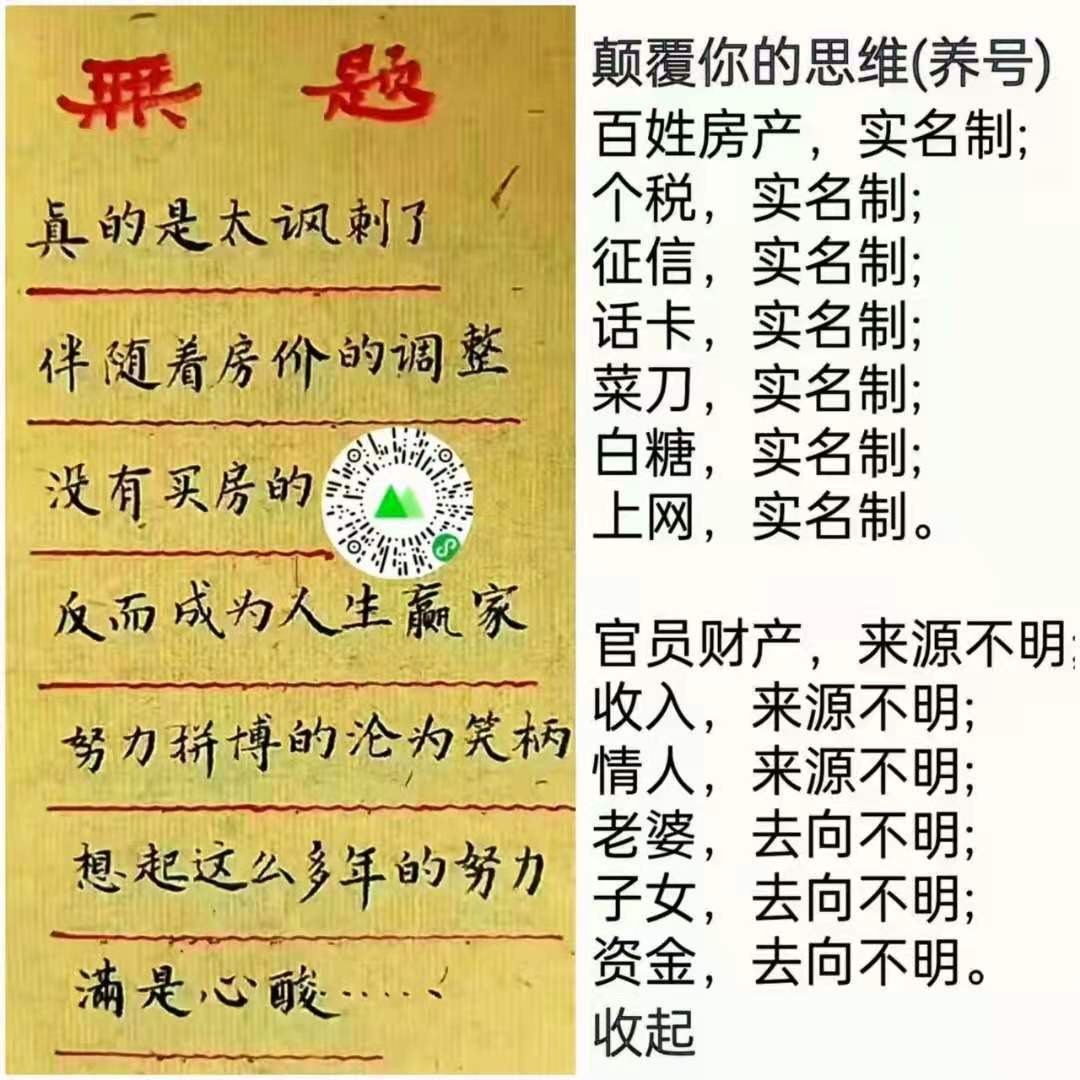 無题
真的是太讽刺了
伴随着房价的调整
没有买房的
反而成为人生赢家
努力拼博的沦为笑柄
想起这么多年的努力
满是心酸.....
颠覆你的思维(养号)
百姓房产，实名制;
个税，实名制;
征信，实名制;
话卡，实名制;
菜刀，实名制;
白糖，实名制;
上网，实名制。
官员财产，来源不明;
收入，来源不明;
情人，来源不明;
老婆，去向不明;
子女，去向不明;
资金，去向不明。
收起